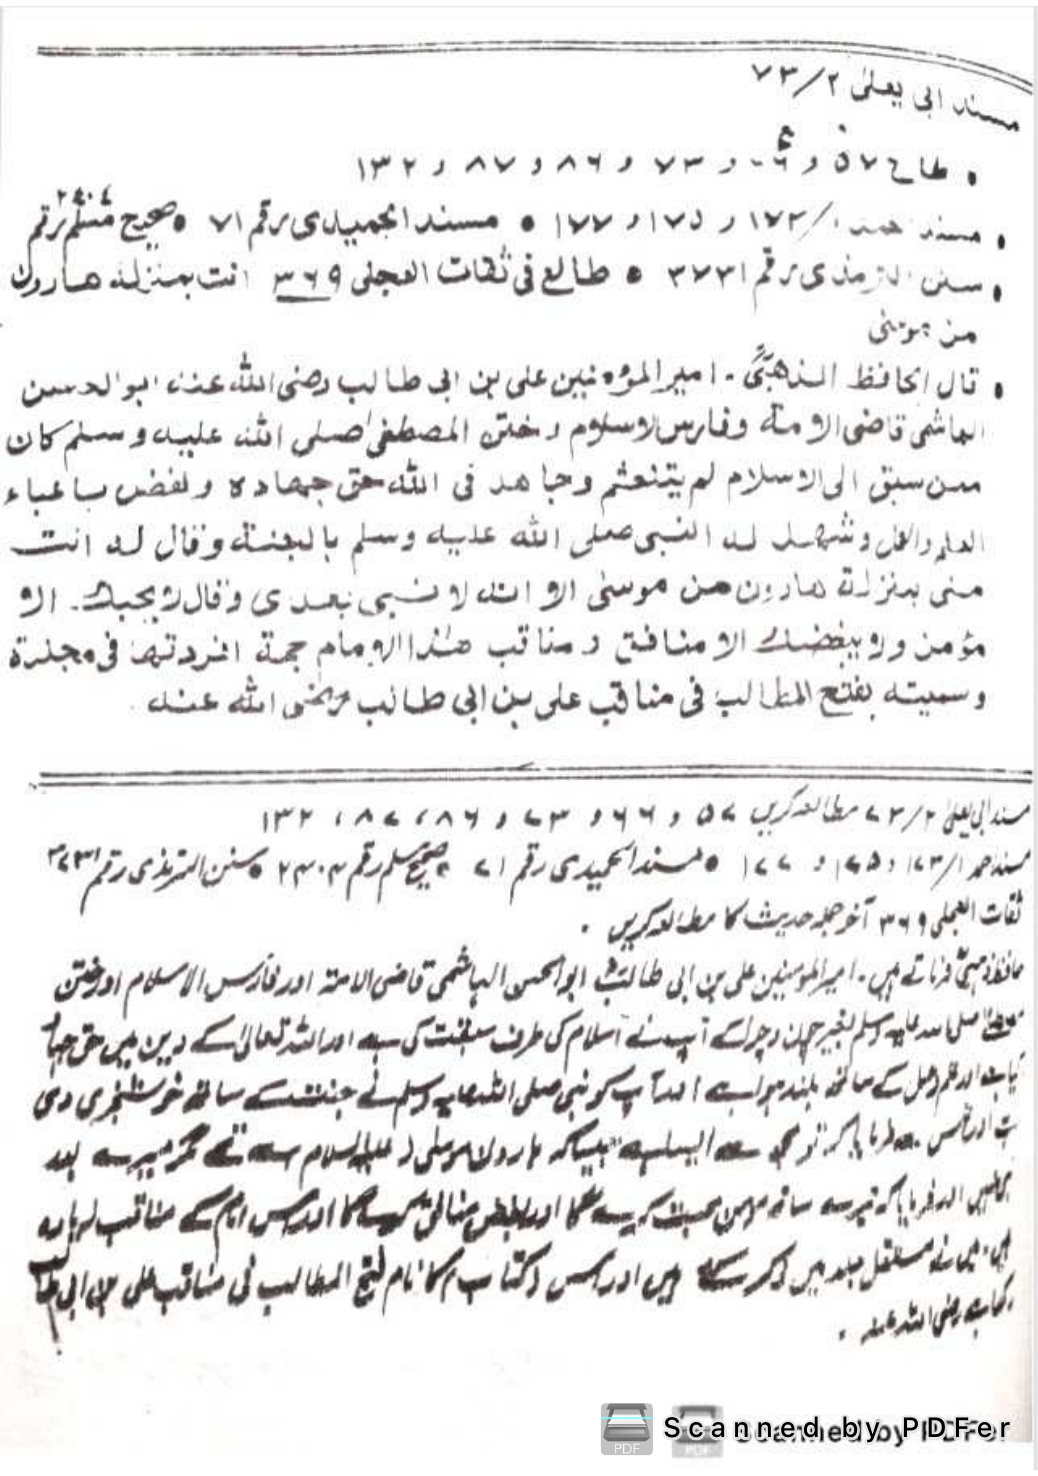 مسند ابی یعلیٰ ۲/۷۳
• طالح ۵۷ و ۶۰ و ۷۳ و ۸۶ و ۸۷ و ۱۳۲
• مسند احمد ۱/۱۷۳ و ۱۷۵ و ۱۷۷ • مسند الحمیدی رقم ۷۱ • صحیح مسلم رقم ۲۴۰۴
• سنن الترمذی رقم ۳۷۳۱ • طالع فی ثقات العجلی ۳۶۹ انت بمنزلۃ ھارون
من موسیٰ
• قال الحافظ الذھبیؒ۔ امیر المؤمنین علی بن ابی طالب رضی اللہ عنہ ابو الحسن
الھاشمی قاضی الامۃ وفارس الاسلام وختن المصطفیٰ صلی اللہ علیہ وسلم کان
ممن سبق الی الاسلام لم یتلعثم وجاھد فی اللہ حق جھادہ ونھض باعباء
العلم والعمل وشھد لہ النبی صلی اللہ علیہ وسلم بالجنۃ وقال لہ انت
منی بمنزلۃ ھارون من موسیٰ الا انہ لا نبی بعدی وقال لا یحبک۔ الا
مؤمن ولا یبغضک الا منافق ومناقب ھٰذا الامام جمۃ افردتھا فی مجلدۃ
وسمیتہ بفتح المطالب فی مناقب علی بن ابی طالب رضی اللہ عنہ۔
مسند ابی یعلیٰ ۲/۷۳ مطالعہ کریں ۵۷ و ۶۶ و ۷۳ و ۸۶، ۸۷، ۱۳۲
مسند احمد ۱/۱۷۳، ۱۷۵ و ۱۷۷ • مسند الحمیدی رقم ۷۱ • صحیح مسلم رقم ۲۴۰۴ • سنن الترمذی رقم ۳۷۳۱
ثقات العجلی ۳۶۹ آخر جملہ حدیث کا مطالعہ کریں۔
حافظ ذھبیؒ فرماتے ہیں۔ امیر المومنین علی بن ابی طالبؓ ابو الحسن الہاشمی قاضی الامتہ اور فارس الاسلام اور ختن
مصطفےٰ صلی اللہ علیہ وسلم بغیر چون و چرا کے آپ نے اسلام کی طرف سبقت کی ہے اور اللہ تعالیٰ کے دین میں حق جہاد
اور علم و عمل کے ساتھ بلند ہوا ہے اور آپ کو نبی صلی اللہ علیہ وسلم نے جنت کے ساتھ خوشخبری دی
فرمایا کہ تو مجھ سے ایسا ہے جیسا کہ ہارون موسیٰ (علیہ السلام) سے تھے مگر میرے بعد
نہیں اور فرمایا کہ تیرے ساتھ مومن محبت کرے گا اور بغض منافق کرے گا اور اس امام کے مناقب زیادہ
ہیں، میں نے مستقل جلد میں ذکر کئے ہیں اور اس (کتاب) کا نام فتح المطالب فی مناقب علی بن ابی طالب
رکھا ہے رضی اللہ عنہ۔
Scanned by PDFer